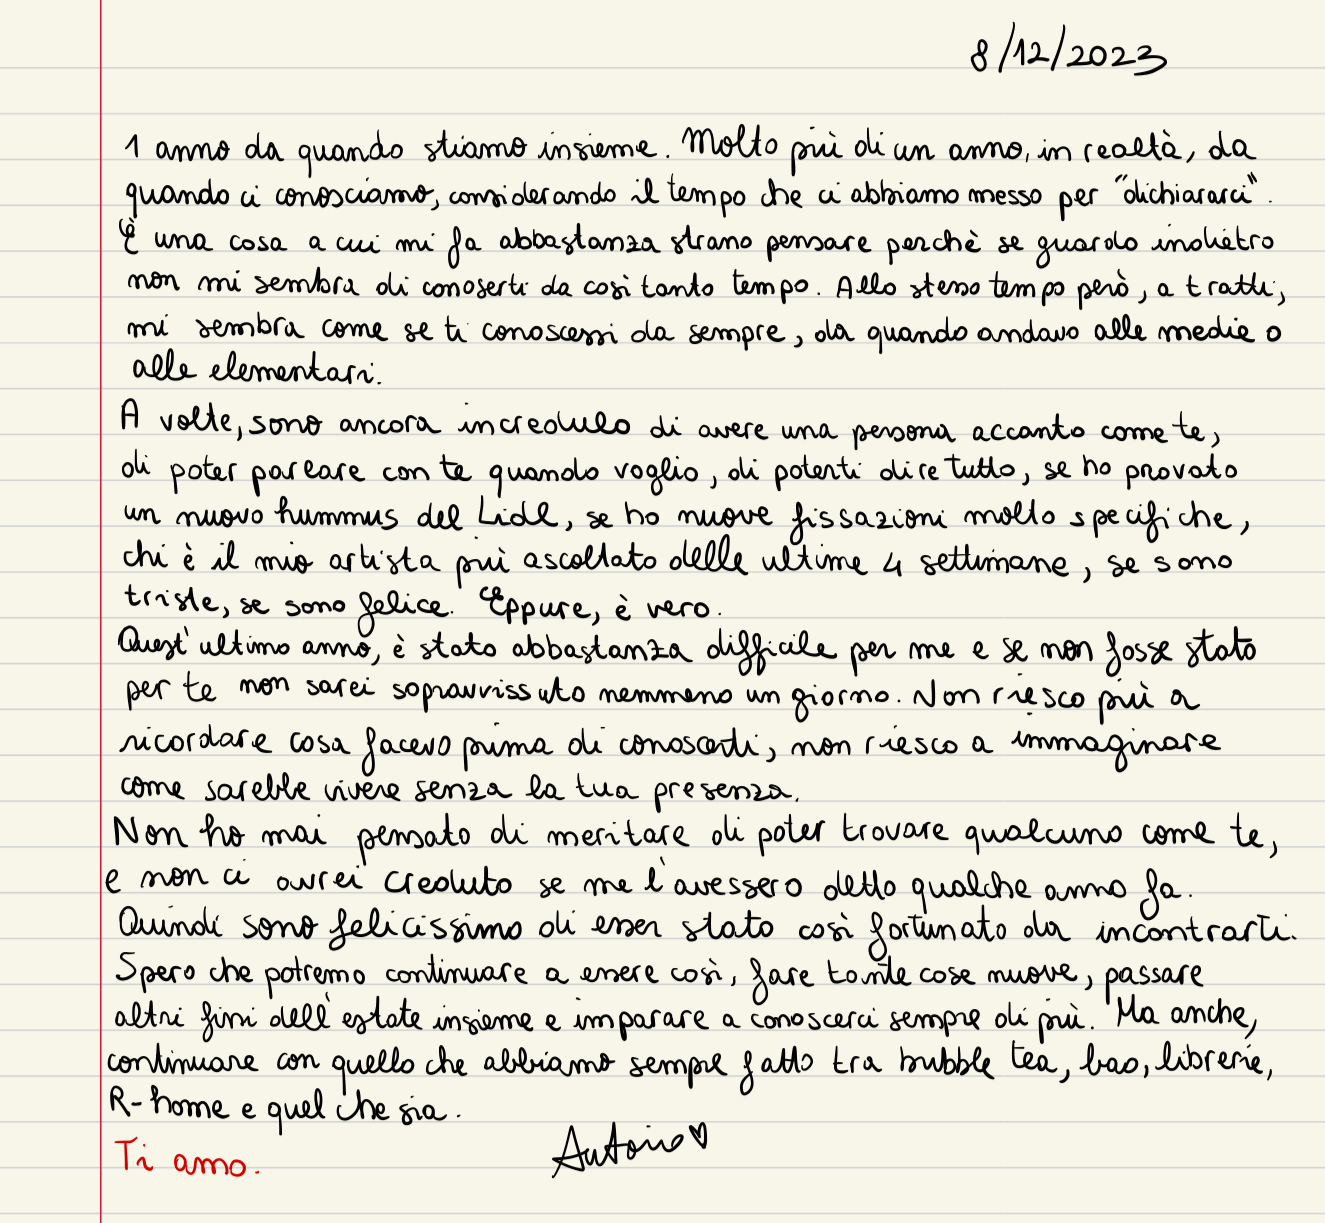 8/12/2023
1 anno da quando stiamo insieme. Molto più di un anno, in realtà, da
quando ci conosciamo, considerando il tempo che ci abbiamo messo per "dichiararci".
È una cosa a cui mi fa abbastanza strano pensare perchè se guardo indietro
non mi sembra di conoserti da così tanto tempo. Allo stesso tempo però, a tratti,
mi sembra come se ti conoscessi da sempre, da quando andavo alle medie o
alle elementari.
A volte, sono ancora incredulo di avere una persona accanto come te,
di poter parlare con te quando voglio, di poterti dire tutto, se ho provato
un nuovo hummus del Lidl, se ho nuove fissazioni molto specifiche,
chi è il mio artista più ascoltato delle ultime 4 settimane, se sono
triste, se sono felice. Eppure, è vero.
Quest'ultimo anno, è stato abbastanza difficile per me e se non fosse stato
per te non sarei sopravvissuto nemmeno un giorno. Non riesco più a
ricordare cosa facevo prima di conoscerti, non riesco a immaginare
come sarebbe vivere senza la tua presenza.
Non ho mai pensato di meritare di poter trovare qualcuno come te,
e non ci avrei creduto se me l'avessero detto qualche anno fa.
Quindi sono felicissimo di esser stato così fortunato da incontrarti.
Spero che potremo continuare a essere così, fare tante cose nuove, passare
altri fini dell'estate insieme e imparare a conoscerci sempre di più. Ma anche,
continuare con quello che abbiamo sempre fatto tra bubble tea, bao, librerie,
R-home e quel che sia.
Ti amo. Antonio♡